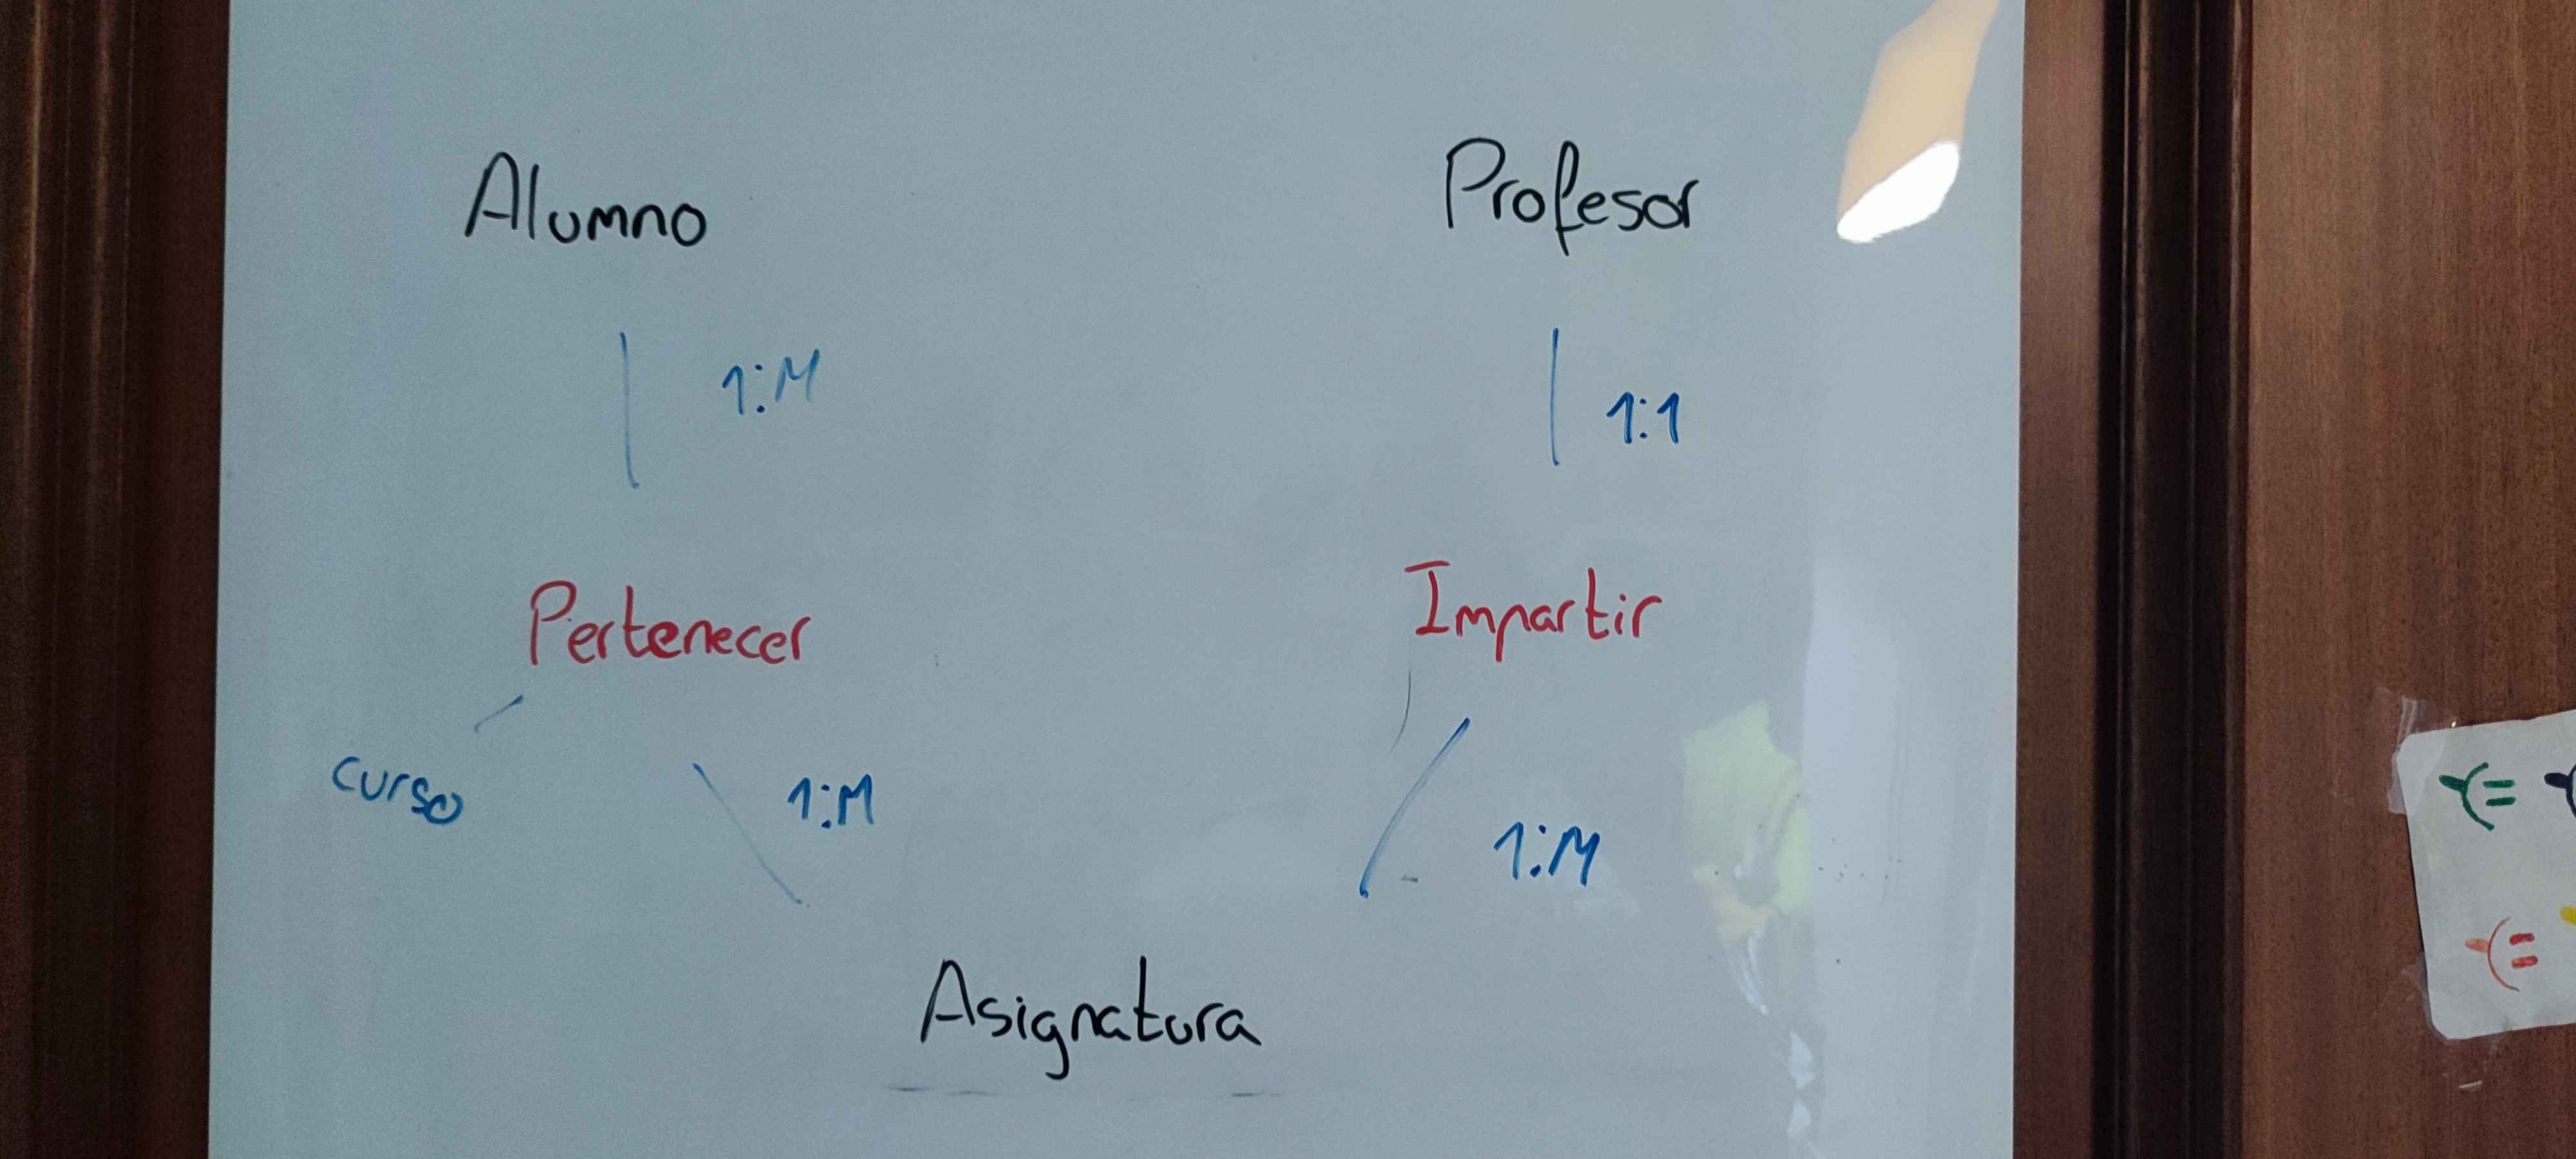 Alumno
Profesor
1:M
1:1
Pertenecer
Impartir
curso
1:M
1:M
Asignatura